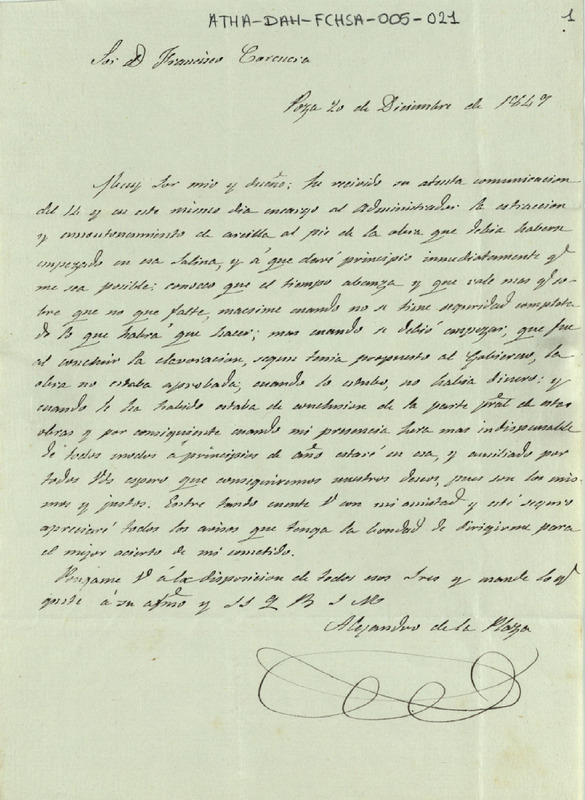 ATHA-DAH-FCHSA-005-021
1
Sor. dn Francisco Corcuera
Poza 20 de Diciembre de 1849
Muy Sor mio y dueño; he recivido su atenta comunicacion
del 14 y en este mismo dia encargo al Administrador la estraccion
y amontonamiento de arcilla al pie de la obra que debia haberse
empezado en esa Salina, y á que daré principio inmediatamente qe
me sea posible: conozco que el tiempo abanza y que vale mas qe so-
bre que no que falte, macsime cuando no se tiene seguridad completa
de lo que habrá que hacer; mas cuando se debió empezar, que fue
al concluir la elavoracion, segun tenia propuesto al Gobierno, la
obra no estaba aprobada; cuando lo estubo, no habia dinero: y
cuando le ha habido estaba de conclusion de la parte pral de otras
obras y por consiguiente cuando mi presencia hera mas indispensable
de todos modos á principios de año estaré en esa, y ausiliado por
todos Vds espero que conseguiremos nuestros deseos, pues son los mis-
mos y justos. Entre tanto cuente V. con mi amistad y esté seguro
apreciaré todos los avisos que tenga la bondad de dirigirme para
el mejor acierto de mi cometido.
Pongame V. á la disposicion de todos esos Sres y mande lo qe
guste á su afmo y S S Q B S M
Alejandro de la Plaza